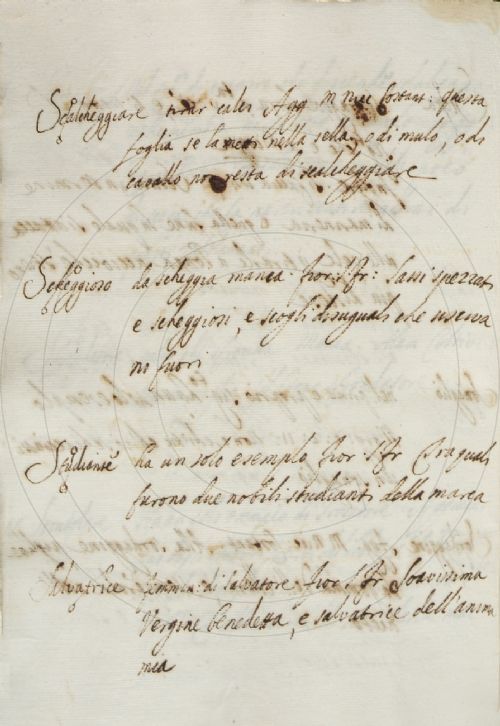 Scalcheggiare tirar calci Agg. m nac: fortant: questa
foglia se la metti nella sella, o di mulo, o di
cavallo non resta di scalcheggiare
Scheggioso da scheggia manca. fior: S. fr: sassi spezzati
e scheggiosi, e scogli disuguali che usciva
no fuori
Studiante ha un solo esempio fior S. fr Tra quali
furono due nobili studianti della marca
Salvatrice femmin: di Salvatore. fior S fr Soavissima
Vergine benedetta, e salvatrice dell'anima
mia